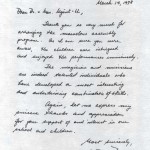 March 19, 1998
Dear Dr. & Mrs.
Thank you so very much for
arranging the marvelous assembly
program. As I am sure you were
aware, the children were intrigued
and enjoyed the performance immensely.
The magician and musicians
are indeed talented individuals who
have developed a most interesting and
entertaining combination of skills.
Again, let me express my
sincere thanks and appreciation
for your support of and interest in our
school and children.
Most sincerely,